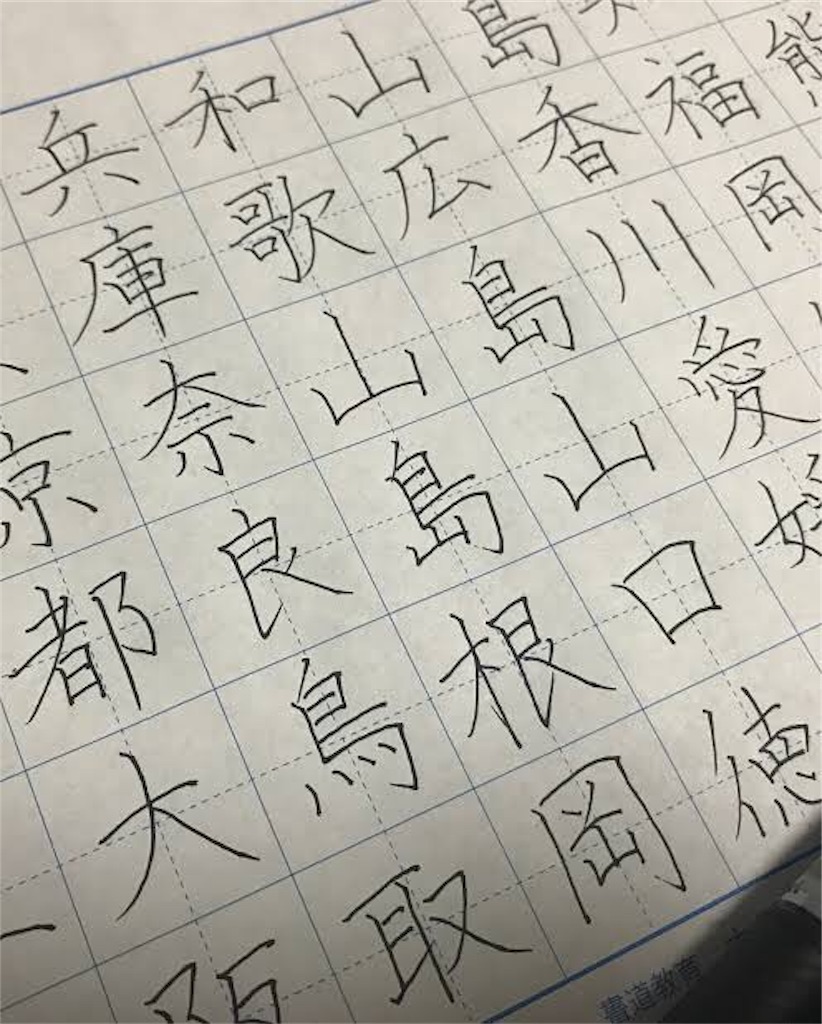 京都大阪
兵庫奈良鳥取
和歌山島根岡
山広島山口徳
島香川愛媛
福岡
熊
書道教育